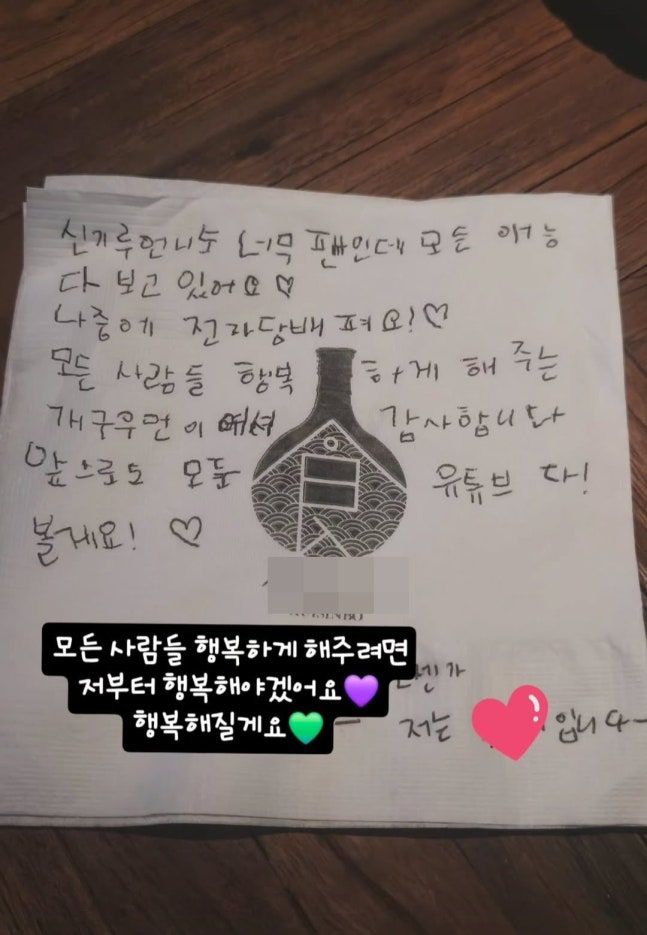 신기루언니도 너무 팬인데 모든 예능
다 보고 있어요♡
나중에 전라당배 펴요!♡
모든 사람들 행복 하게 해 주는
개구우먼이여서 감사합니다
앞으로도 모든 유튜브 다!
볼게요! ♡
모든 사람들 행복하게 해주려면
저부터 행복해야겠어요💜
행복해질게요💚
저는 입니다~